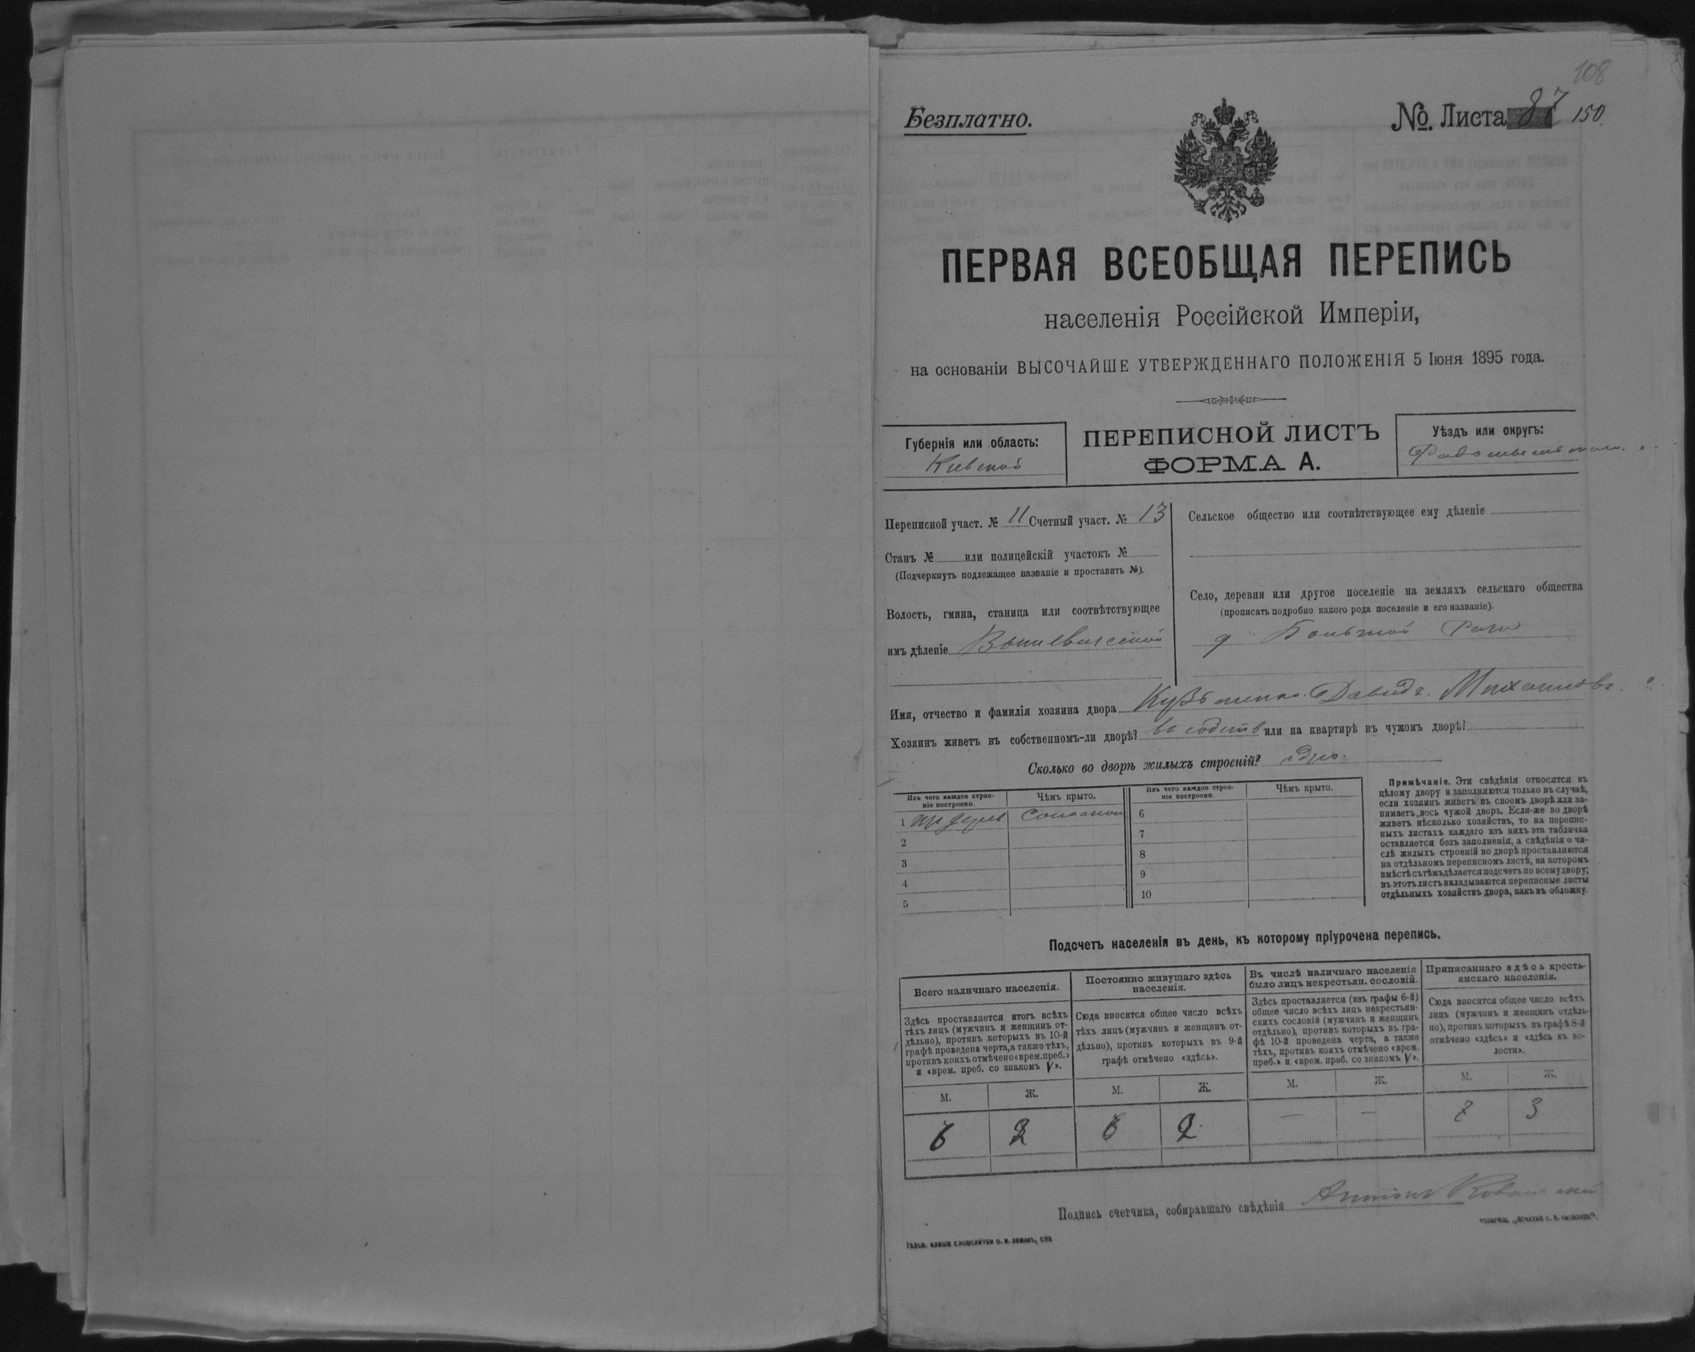 108
Безплатно.
№. Листа 87 150
ПЕРВАЯ ВСЕОБЩАЯ ПЕРЕПИСЬ
населенія Россійской Имперіи,
на основаніи ВЫСОЧАЙШЕ УТВЕРЖДЕННАГО ПОЛОЖЕНІЯ 5 Іюня 1895 года.
Губернія или область:
Кіевской
ПЕРЕПИСНОЙ ЛИСТЪ
ФОРМА А.
Уѣздъ или округъ:
Переписной участ. № 11 Счетный участ. № 13
Станъ № или полицейскій участокъ №
(Подчеркнуть подлежащее названіе и проставить №).
Волость, гмина, станица или соотвѣтствующее
имъ дѣленіе
Сельское общество или соотвѣтствующее ему дѣленіе
Село, деревня или другое поселеніе на земляхъ сельскаго общества
(прописать подробно какого рода поселеніе и его названіе).
Имя, отчество и фамилія хозяина двора Давидъ
Хозяинъ живетъ въ собственномъ-ли дворѣ? въ собств или на квартирѣ въ чужомъ дворѣ?
Сколько во дворѣ жилыхъ строеній? одно.
Изъ чего каждое строе-
ніе построено.
Чѣмъ крыто.
1 изъ дерев Соломой
2
3
4
5
Изъ чего каждое строе-
ніе построено.
Чѣмъ крыто.
6
7
8
9
10
Примѣчаніе. Эти свѣдѣнія относятся къ
цѣлому двору и заполняются только въ случаѣ,
если хозяинъ живетъ въ своемъ дворѣ или за-
нимаетъ весь чужой дворъ. Если-же во дворѣ
живетъ нѣсколько хозяйствъ, то на перепис-
ныхъ листахъ каждаго изъ нихъ эта табличка
оставляется безъ заполненія, а свѣдѣнія о чи-
слѣ жилыхъ строеній во дворѣ проставляются
на отдѣльномъ переписномъ листѣ, на которомъ
вмѣстѣ съ тѣмъ дѣлается подсчетъ по всему двору;
въ этотъ листъ вкладываются переписные листы
отдѣльныхъ хозяйствъ двора, какъ въ обложку.
Подсчетъ населенія въ день, къ которому пріурочена перепись.
Всего наличнаго населенія.
Здѣсь проставляется итогъ всѣхъ
тѣхъ лицъ (мужчинъ и женщинъ от-
дѣльно), противъ которыхъ въ 10-й
графѣ проведена черта, а также тѣхъ,
противъ коихъ отмѣчено «врем. преб.»
и «врем. преб. со знакомъ V».
М. Ж.
6 2
Постоянно живущаго здѣсь
населенія.
Сюда вносится общее число всѣхъ
тѣхъ лицъ (мужчинъ и женщинъ от-
дѣльно), противъ которыхъ въ 9-й
графѣ отмѣчено «здѣсь».
М. Ж.
6 2
Въ числѣ наличнаго населенія
было лицъ некрестьян. сословій.
Здѣсь проставляется (изъ графы 6-й)
общее число всѣхъ лицъ некрестьян-
скихъ сословій (мужчинъ и женщинъ
отдѣльно), противъ которыхъ въ гра-
фѣ 10-й проведена черта, а также
тѣхъ, противъ коихъ отмѣчено «врем.
преб.» и «врем. преб. со знакомъ V».
М. Ж.
— —
Приписаннаго здѣсь кресть-
янскаго населенія.
Сюда вносится общее число всѣхъ
лицъ (мужчинъ и женщинъ отдѣль-
но), противъ которыхъ въ графѣ 8-й
отмѣчено «здѣсь» и «здѣсь въ во-
лости».
М. Ж.
7 3
Подпись счетчика, собиравшаго свѣдѣнія